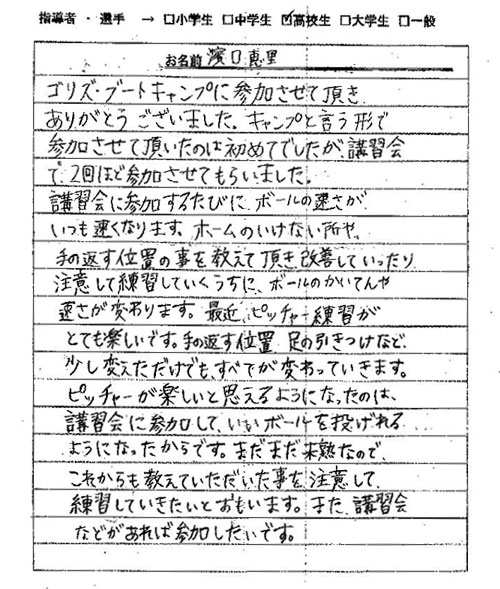 指導者 ・ 選手 → □小学生 □中学生 ☑高校生 □大学生 □一般
お名前 濱口恵里
ゴリズ・ブートキャンプに参加させて頂き
ありがとうございました。キャンプと言う形で
参加させて頂いたのは初めてでしたが、講習会
で、2回ほど参加させてもらいました。
講習会に参加するたびに、ボールの速さが
いつも速くなります。ホームのいけない所や、
手の返す位置の事を教えて頂き改善していったり
注意して練習していくうちに、ボールのかいてんや
速さが変わります。最近、ピッチャー練習が
とても楽しいです。手の返す位置、足の引きつけなど、
少し変えただけでも、すべてが変わっていきます。
ピッチャーが楽しいと思えるようになったのは、
講習会に参加して、いいボールを投げれる
ようになったからです。まだまだ未熟なので、
これからも教えていただいた事を注意して、
練習していきたいとおもいます。また、講習会
などがあれば参加したいです。